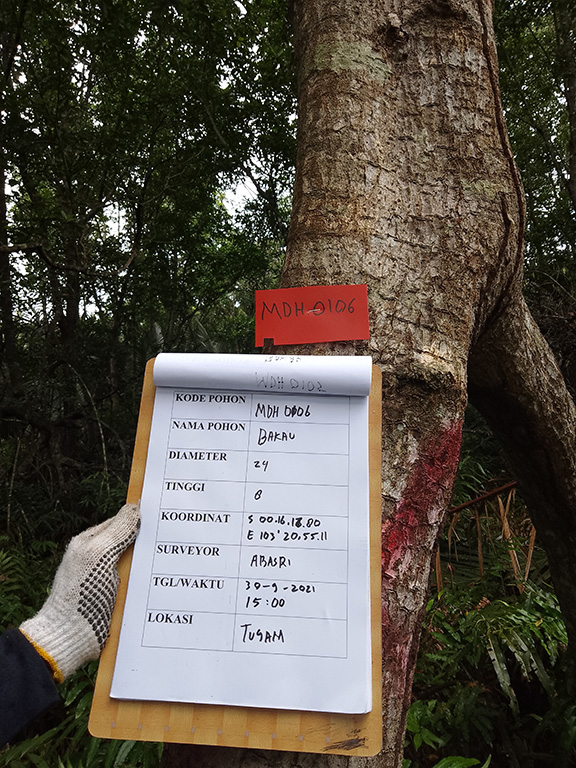 MDH-0106
MDH 0102
KODE POHON MDH 0106
NAMA POHON BAKAU
DIAMETER 24
TINGGI 8
KOORDINAT S 00.16.18.00
E 103°20.55.11
SURVEYOR ABASRI
TGL/WAKTU 30-9-2021
15:00
LOKASI TUGAM